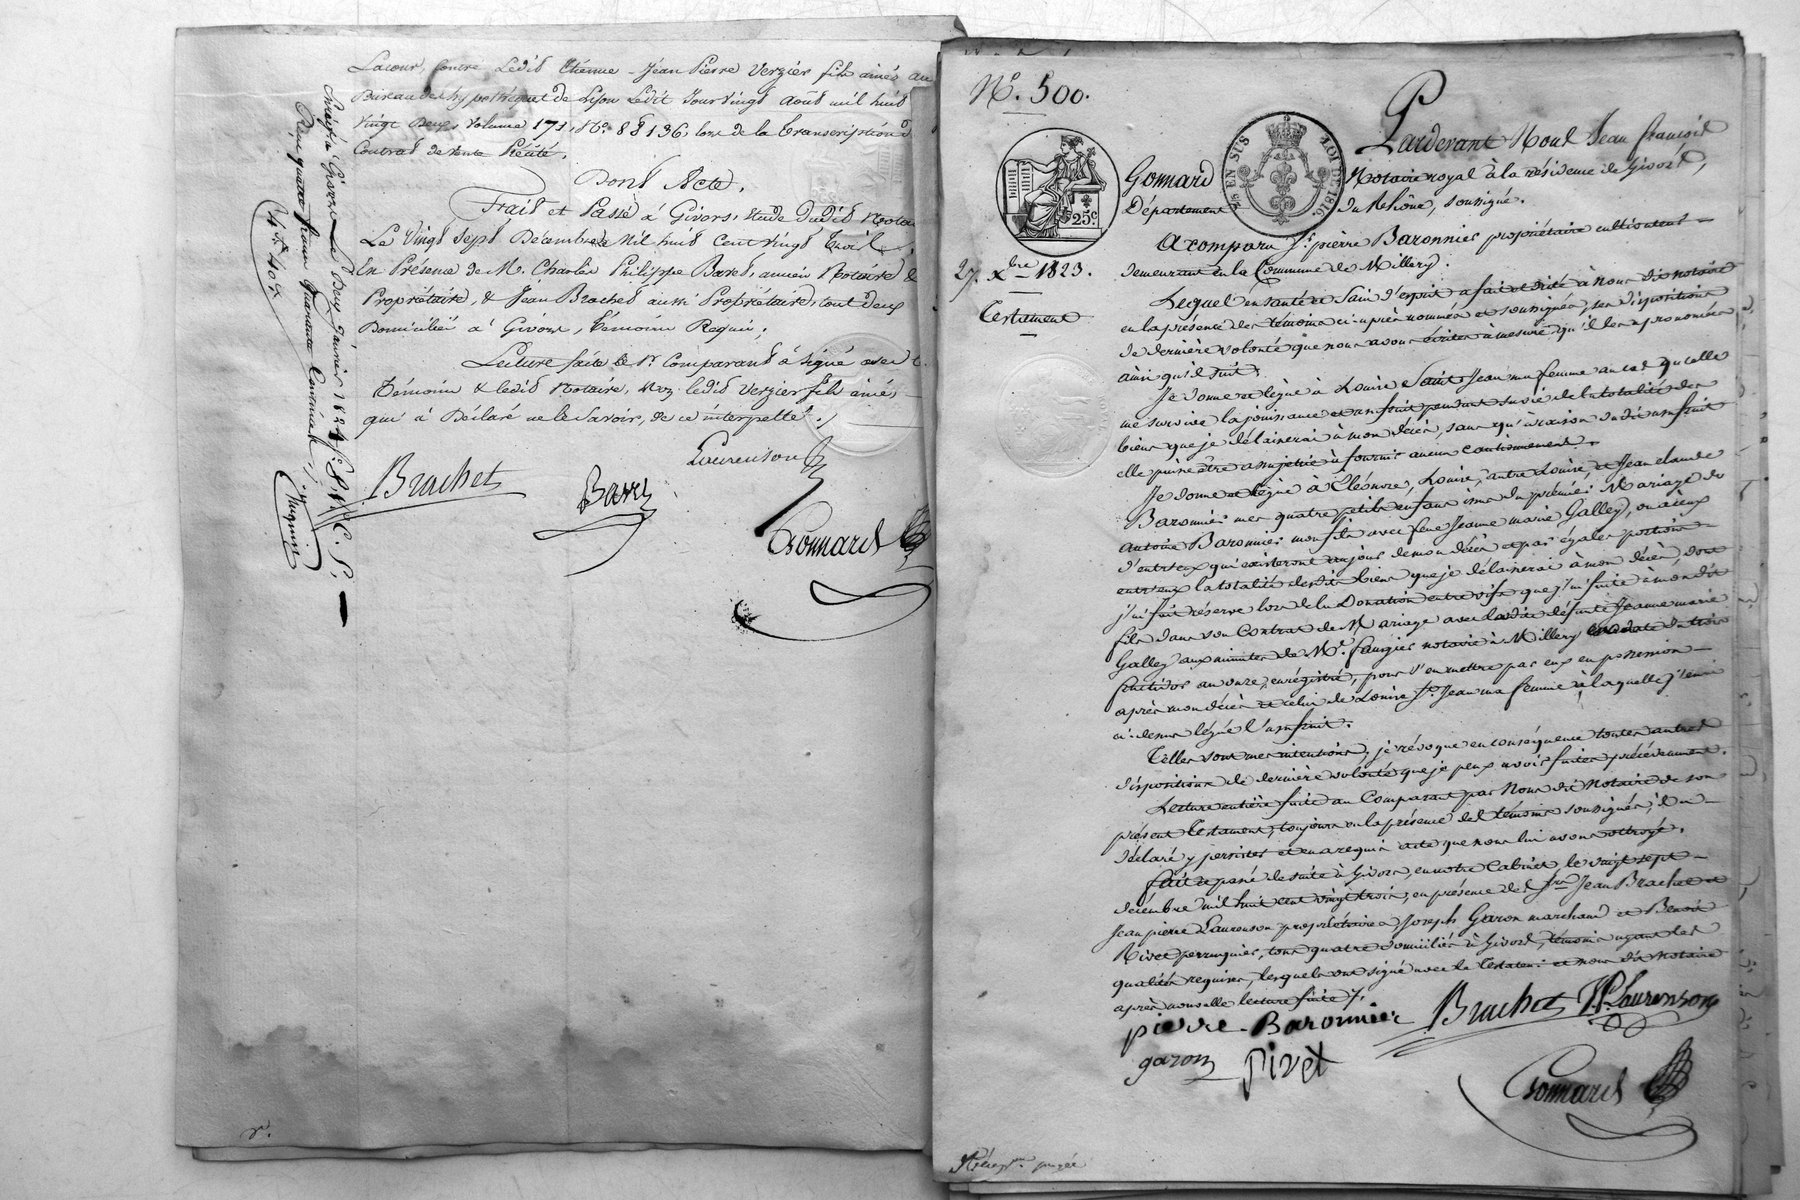 Lacour, contre Ledit Etienne Jean Pierre Verzier fils ainé, au
Bureau des hypothèques de Lyon Ledit Jour vingt août mil huit
vingt Deux, volume 171, No. 88136, lors de la transcription d
Contrat de vente Précité.
Dont Acte,
Fait et Passé à Givors, étude dudit Notai
Le vingt sept Décembre Mil huit Cent vingt trois
En Présence de M. Charles Philippe Baret, ancien Notaire &
Propriétaire, & Jean Brachet aussi Propriétaire, tout deux
Domiciliés à Givors, témoins Requis,
Lecture faite le Sr Comparant à signé avec l
témoins & ledit Notaire, non ledit Verzier fils ainé,
qui à Déclaré ne le savoir, de ce interpellé ./.
Laurenson
Brachet
Baret
Gonnard
Enregistré à Givors Le Deux Janvier 1824 fo
Reçu quatre francs quarante Centimes
4 fr. 40 c
No. 500.
27. xbre 1823.
Testament
25c
EN SUS
LOI DE 1816.
Pardevant Nous Jean françois
Gonnard Notaire royal à la résidence de Givors,
Département du Rhône, soussigné.
A comparu Sr. pierre Baronnier propriétaire cultivateur
demeurant en la Commune de Millery.
Lequel en santé et sain d'esprit a fait et dicté à Nous dit notaire
en la présence des témoins ci-après nommés et soussignés, ses dispositions
de dernière volonté que nous avons écrites à mesure qu'il les a prononcées
ainsi qu'il suit.
Je donne et lègue à Louise Saint Jean ma femme au cas qu'elle
me survive la jouissance et usufruit pendant sa vie de la totalité des
biens que je délaisserai à mon décès, sans qu'à raison dudit usufruit
elle puisse être assujetie à fournir aucun cautionnement.
Je donne et lègue à Eléonore, Louise, autre Louise, et Jean claude
Baronnier mes quatre petits enfans issus du premier Mariage de
antoine Baronnier mon fils avec feue Jeanne marie Galley, ou à ceux
d'entr'eux qui existeront au jour de mon décès et par égales portions
entr'eux la totalité desdits biens que je délaisserai à mon décès, dont
j'ai fait réserve lors de la Donation entre vifs que j'ai faite à mondit
fils dans son Contrat de Mariage avec ladite défunte Jeanne marie
Galley aux minutes de Me. faugier notaire à Millery en date du trois
fructidor an onze, enrégistré, pour s'en mettre par eux en possession
après mon décès et celui de Louise St. Jean ma femme à laquelle j'en ai
ci-dessus légué l'usufruit.
Telles sont mes intentions, je révoque en conséquence toutes autres
dispositions de dernière volonté que je peux avoir faites précédemment.
Lecture entière faite au Comparant par Nous dit Notaire de son
présent testament, toujours en la présence des témoins soussignés, il a
déclaré y persister et en a requis acte que nous lui avons octroyé.
fait et passé de suite à Givors, en notre Cabinet, le vingt sept
décembre mil huit cent vingt trois, en présence des Srs Jean Brachet et
Jean pierre Laurenson propriétaires, Joseph Garon marchand et Benoît
Pivet perruquier, tous quatre domiciliés à Givors, témoins ayant les
qualités requises, lesquels ont signé avec le testateur et nous dit Notaire
après nouvelle lecture faite ./.
pierre Baronnier Brachet J.P. Laurenson
garon pivet
Gonnard